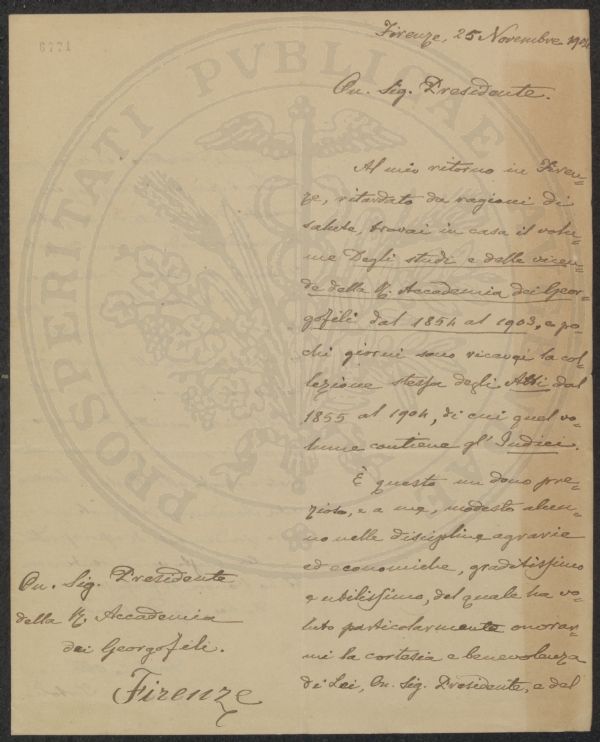 6771
Firenze, 25 Novembre 1904
On. Sig. Presidente.
Al mio ritorno in Firen-
ze, ritardato da ragioni di
salute, trovai in casa il volu-
me Degli studi e delle vicen-
de della R. Accademia dei Geor-
gofili dal 1854 al 1903, e po-
chi giorni sono ricevei la col-
lezione stessa degli Atti dal
1855 al 1904, di cui quel vo-
lume contiene gl'Indici.
È questo un dono pre-
zioso, e a me, modesto alun-
no nelle discipline agrarie
ed economiche, graditissimo
e utilissimo, del quale ha vo-
luto particolarmente onorar-
mi la cortesia e benevolenza
di Lei, On. Sig. Presidente, e del
On. Sig. Presidente
della R. Accademia
dei Georgofili.
Firenze
PROSPERITATI PVBLICAE
AE